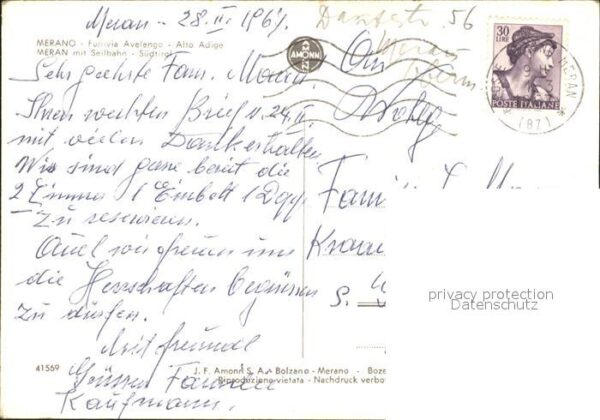 Meran - 28. II. 1967.
Dantestr. 56
Meran
MERANO - Funivia Avelengo - Alto Adige
MERAN mit Seilbahn - Südtirol
AMONN
30
LIRE
POSTE ITALIANE
MERAN
(BZ)
Sehr geehrte Fam.
An
Ihren werten Brief v. 24. II.
mit vielen Dank erhalten
Wir sind gane bereit die
2 Zimmer 1 Einbett 1 Dpp.
- Zu reservieren.
Fam
Auch wir freuen uns
die Herrschaften begrüssen
zu dürfen.
S.
privacy protection
Datenschutz
Mit freundl
41569
J. F. Amonn S. A. Bolzano - Merano - Boze
Riproduzione vietata - Nachdruck verbo
Grüssen Familie
Kaufmann.